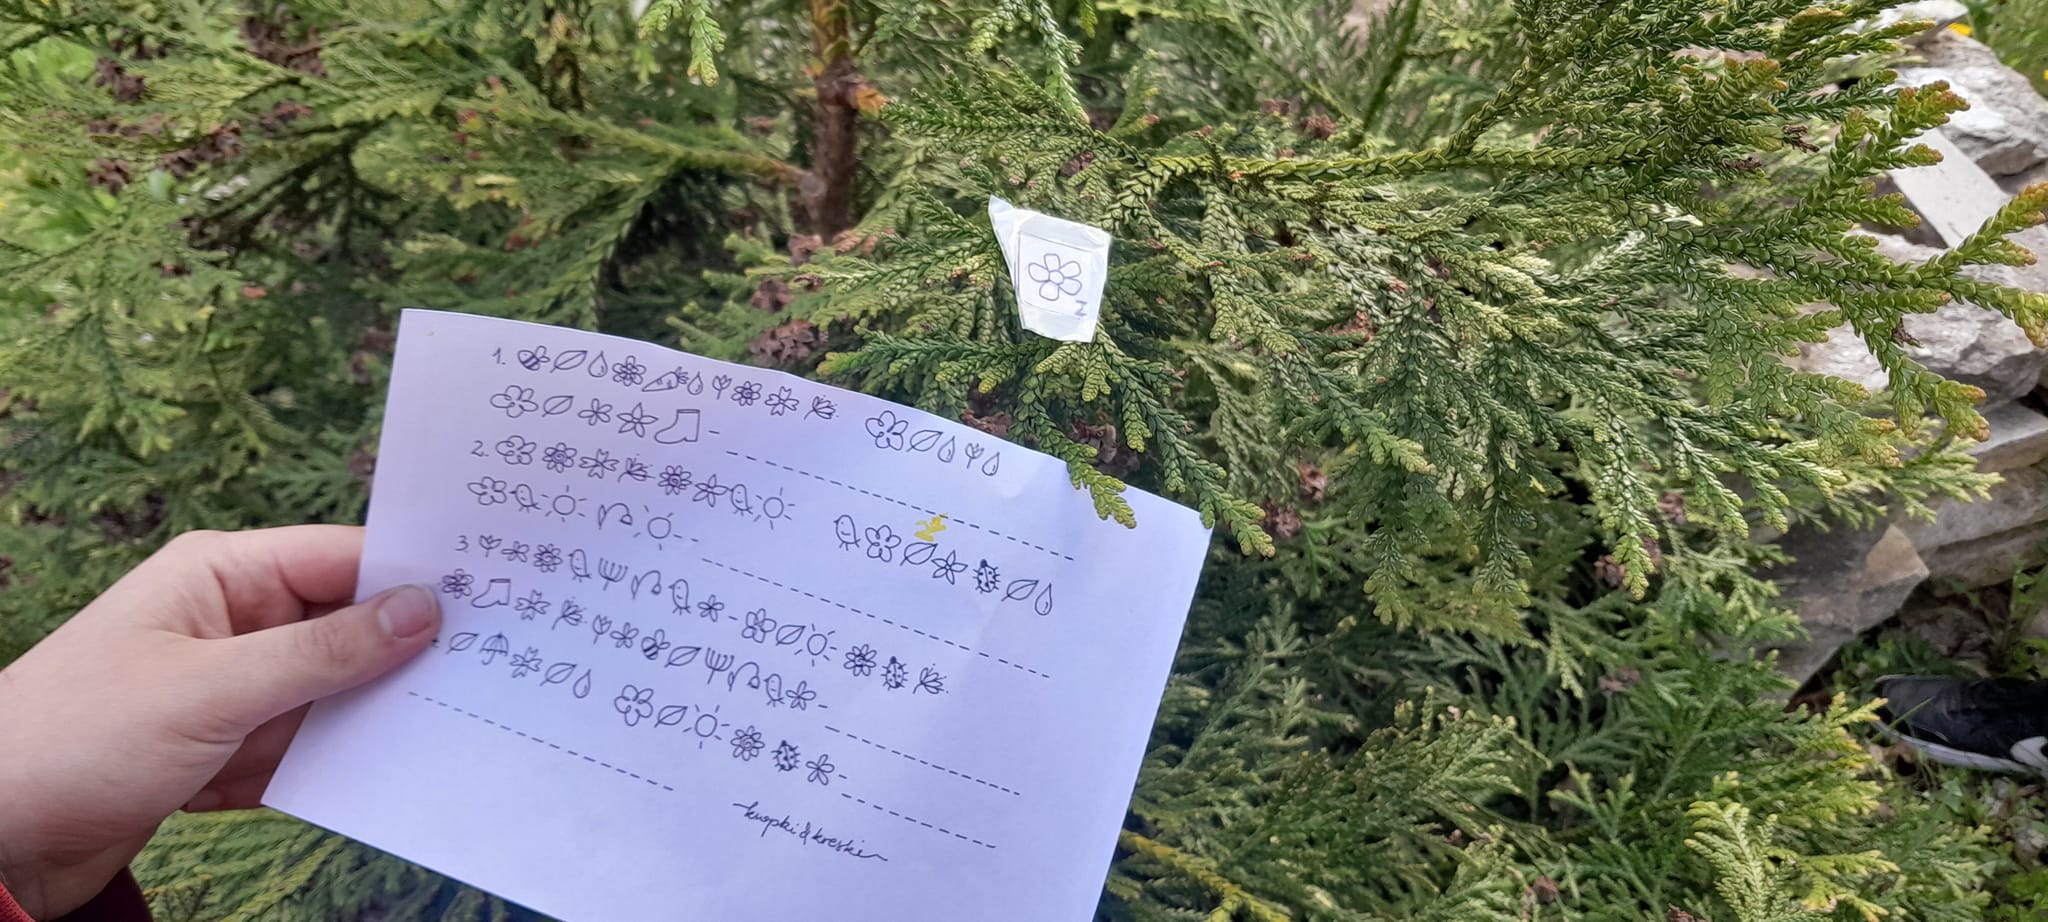 Z
1.
2.
3.
kropki&kreski